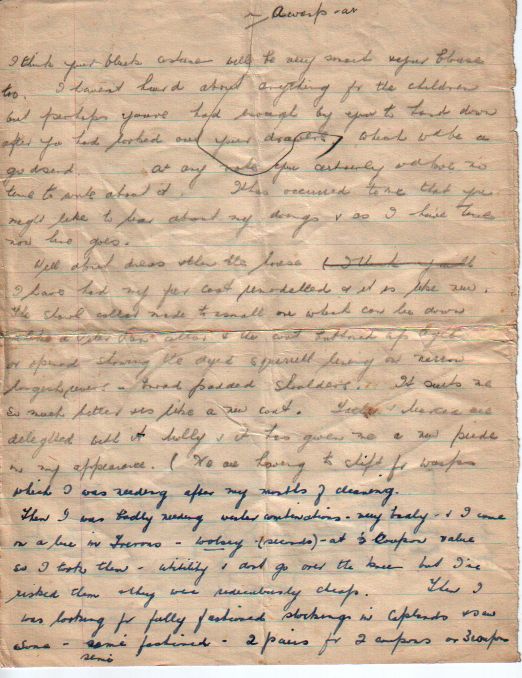 I think your black costume will be very smart & your blouse
too. I havent heard about anything for the children
but perhaps youve had enough by you to hand down
after you had looked out your drawers, which wd be a
godsend. at any rate you certainly wd have no
time to write about it. It has occurred to me that you
might like to hear about my doings & as I have time
now here goes.
Well about dress after the house
I have had my fur coat remodelled & it is like new.
The shawl collar made to small one which can be down
like a Peter Pan collar & the coat buttoned up tight
or opened showing the dyed squirrel lining or narrow
padded shoulders. It suits me
so much better & is like a new coat. are
delighted with it & it has given me a new pride
in my appearance. (No are having to shift for wasps
which I was needing after my months of cleaning.
Then I was badly needing winter combinations - very badly - & I came
on a line in Trerons - wolsey - (seconds) - at ½ coupon value
so I took them - utility & dont go over the knee but I've
risked them & they were rediculously cheap. Then I
was looking for fully fashioned stockings in Coplands & saw
some - semi fashioned - 2 pairs for 2 coupons or 3 coupons
semi